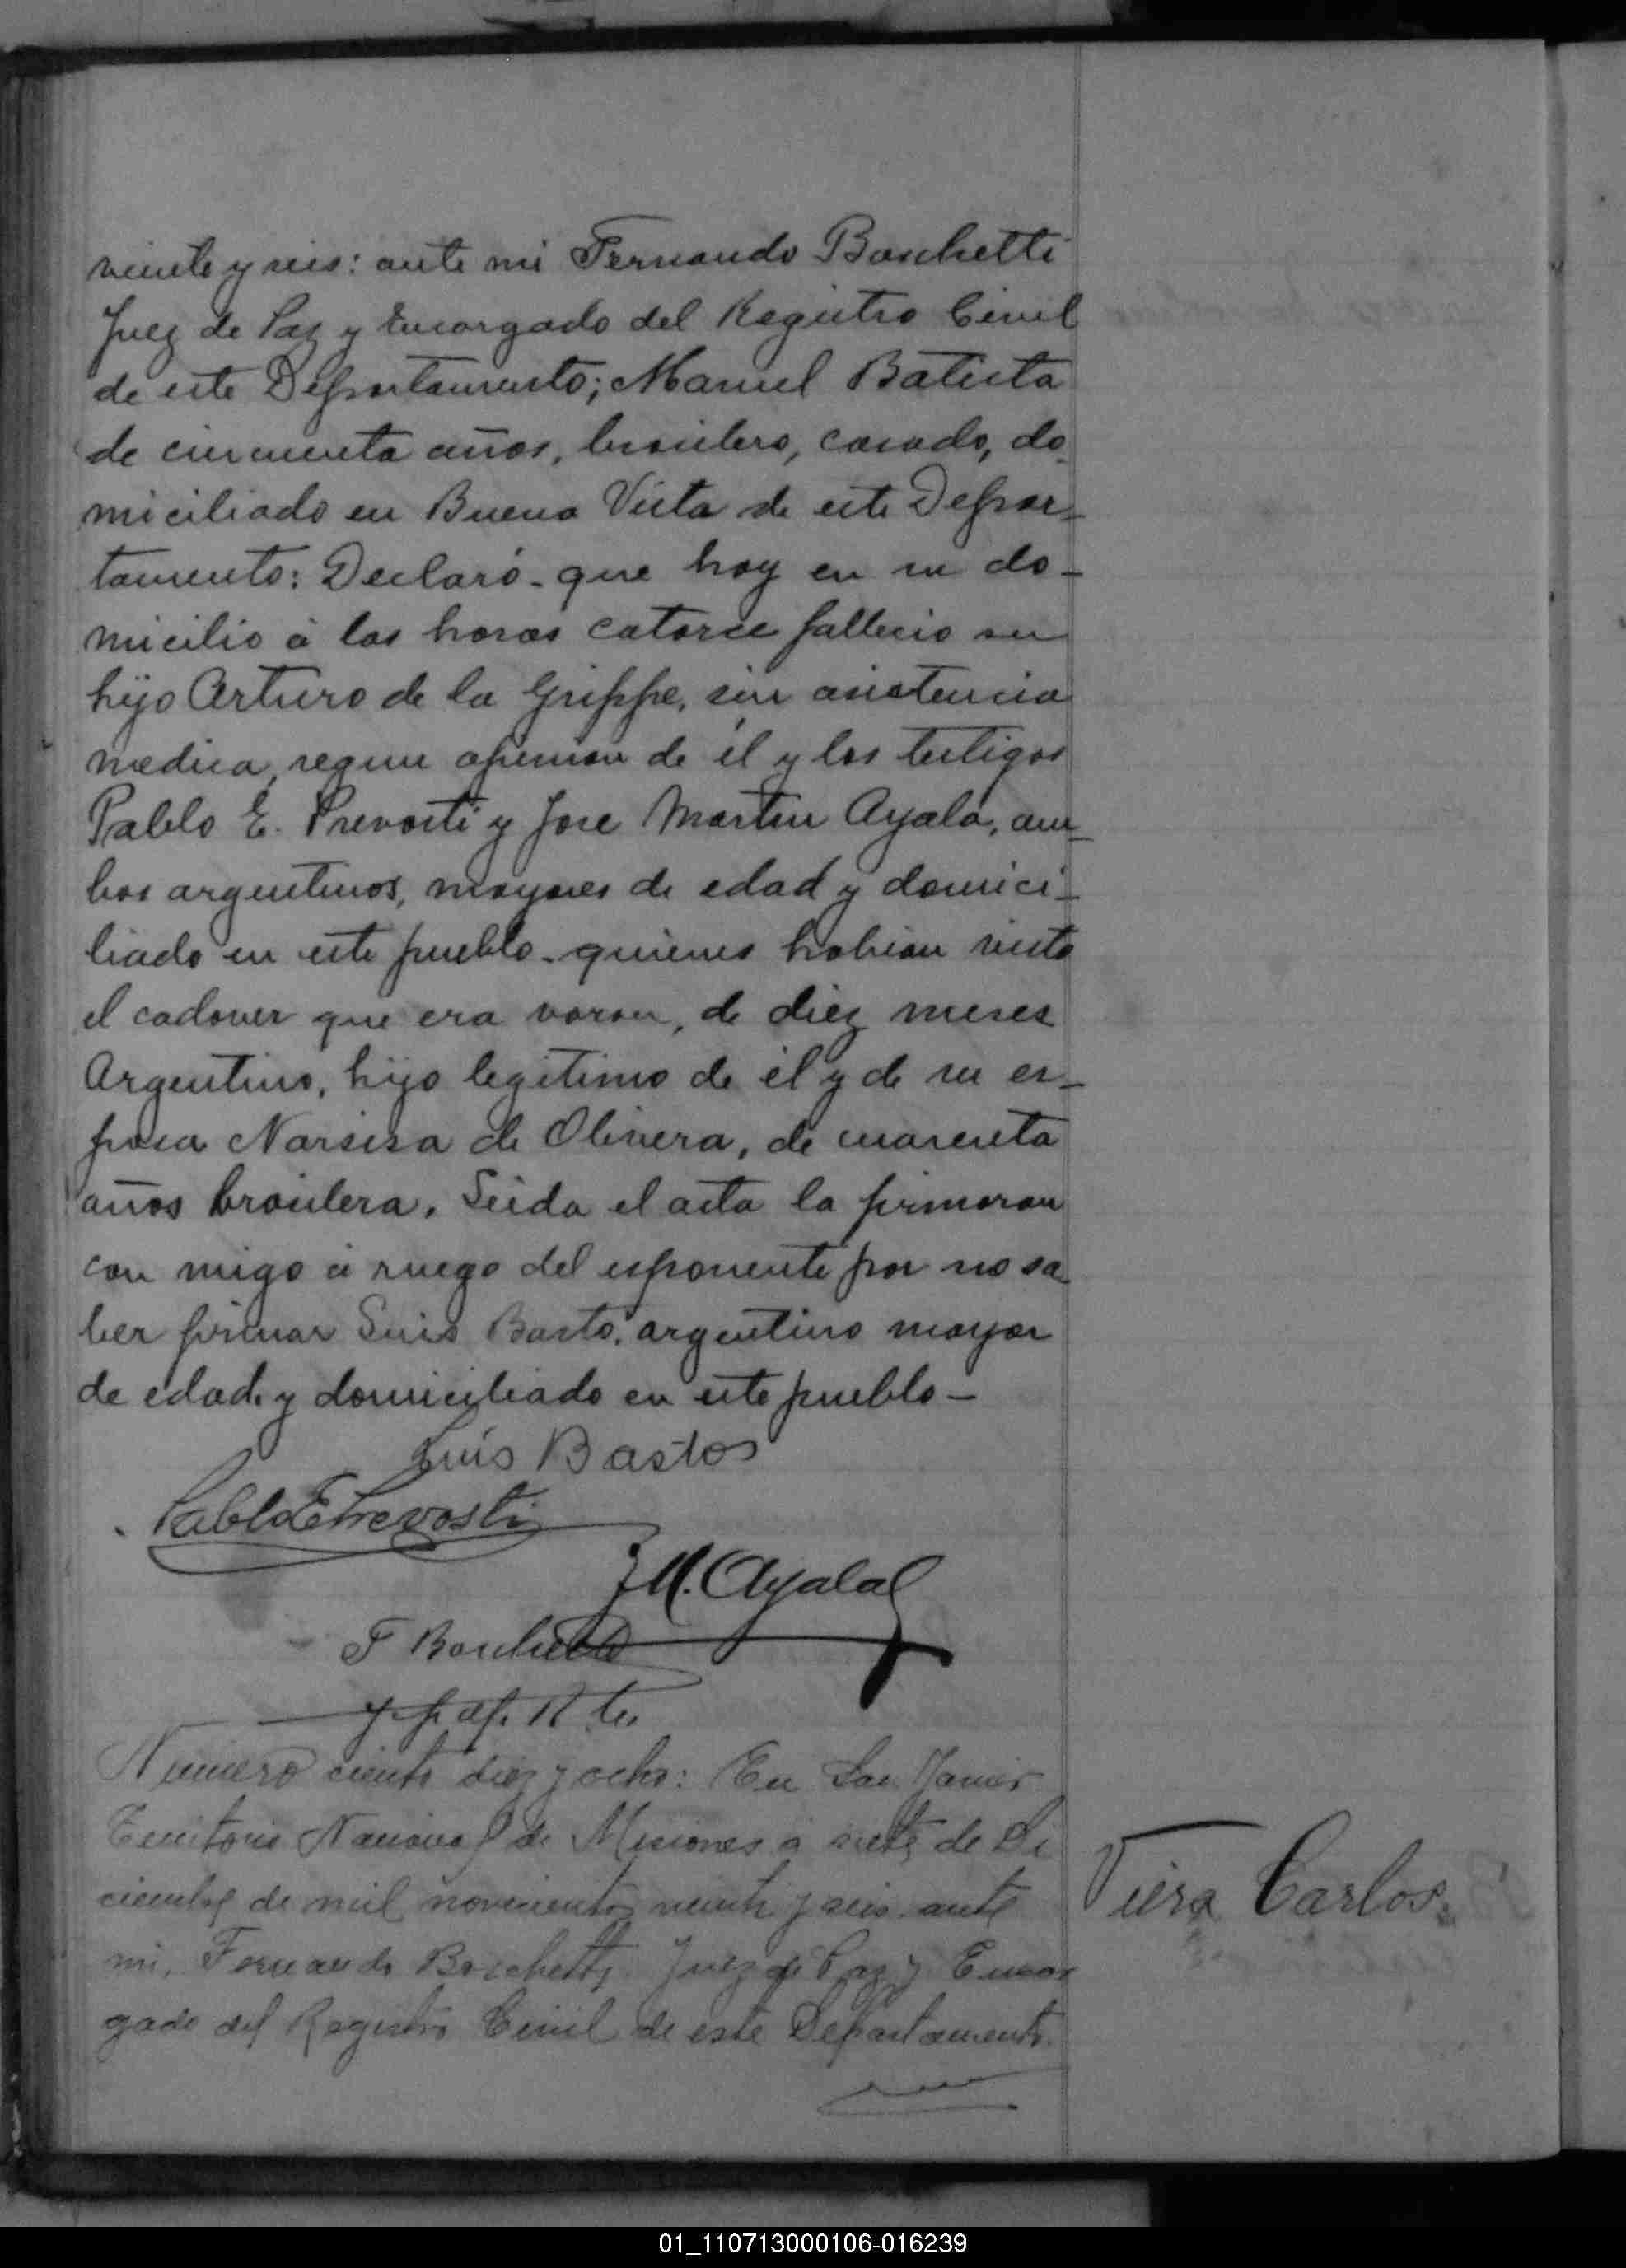 veinte y seis: ante mi Fernando Boschetti
Juez de Paz y Encargado del Registro Civil
de este Departamento; Manuel Batista
de cincuenta años, brasilero, casado, do
miciliado en Buena Vista de este Depar-
tamento: Declaró - que hoy en su do-
micilio á las horas catorce fallecio su
hijo Arturo de la Grippe, sin asistencia
medica, segun opinion de él y los testigos
Pablo E. Prevosti y Jose Martin Ayala, am-
bos argentinos, mayores de edad y domici-
liado en este pueblo - quienes habian visto
el cadaver que era varon, de diez meses
Argentino, hijo legitimo de él y de su es-
posa Narsisa de Olivera, de cuarenta
años brasilera. Leida el acta la firmaron
con migo á ruego del esponente por no sa
ber firmar Luis Basto, argentino mayor
de edad y domiciliado en este pueblo -
Luis Bastos
Pablo E Prevosti
J M. Ayala
F Boschetti
Numero ciento diez y ocho: En San Javier
Territorio Nacional de Misiones á siete de Di
ciembre de mil novecientos veinte y seis ante
mi, Fernando Boschetti, Juez de Paz y Encar
gado del Registro Civil de este Departamento
Viera Carlos.
01_110713000106-016239